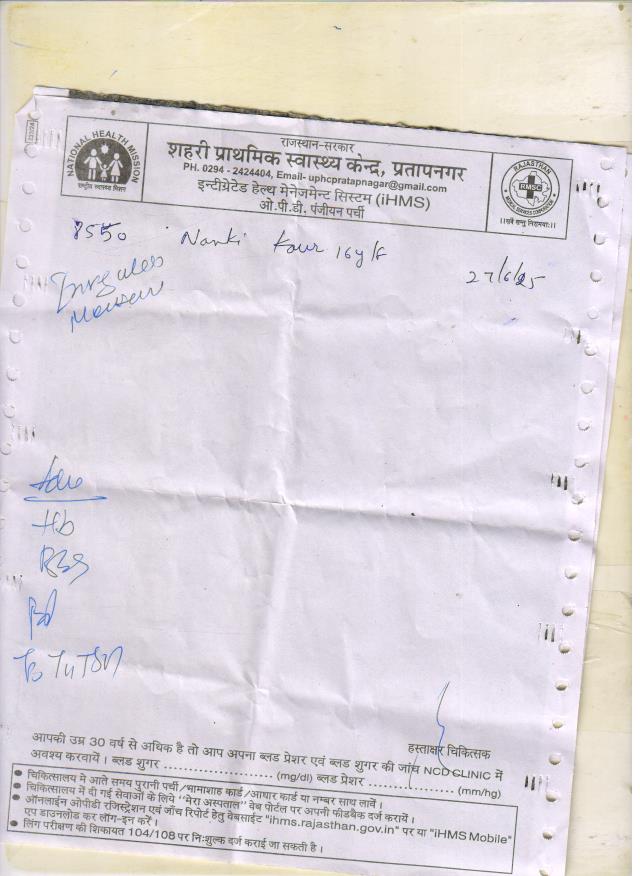 NATIONAL HEALTH MISSION
राष्ट्रीय स्वास्थ्य मिशन
राजस्थान-सरकार
शहरी प्राथमिक स्वास्थ्य केन्द्र, प्रतापनगर
PH. 0294 - 2424404, Email- uphcpratapnagar@gmail.com
इन्टीग्रेटेड हेल्थ मेनेजमेन्ट सिस्टम (iHMS)
ओ.पी.डी. पंजीयन पर्ची
RAJASTHAN
RMSC
MEDICAL SERVICES CORPORATION
।।सर्वे सन्तु निरामयाः।।
8550 Nanki Kour 16y/F
27/6/25
Adv
Hb
RBS
T3 T4 TSH
हस्ताक्षर चिकित्सक
आपकी उम्र 30 वर्ष से अधिक है तो आप अपना ब्लड प्रेशर एवं ब्लड शुगर की जांच NCD CLINIC में
अवश्य करवायें। ब्लड शुगर ........................ (mg/dl) ब्लड प्रेशर .................. (mm/hg)
• चिकित्सालय मे आते समय पुरानी पर्ची/भामाशाह कार्ड/आधार कार्ड या नम्बर साथ लावें।
• चिकित्सालय में दी गई सेवाओं के लिये "मेरा अस्पताल" वेब पोर्टल पर अपनी फीडबैक दर्ज करायें।
• ऑनलाईन ओपीडी रजिस्ट्रेशन एवं जाँच रिपोर्ट हेतु वेबसाईट "ihms.rajasthan.gov.in" पर या "iHMS Mobile"
एप डाउनलोड कर लॉग-इन करें।
• लिंग परीक्षण की शिकायत 104/108 पर निःशुल्क दर्ज कराई जा सकती है।